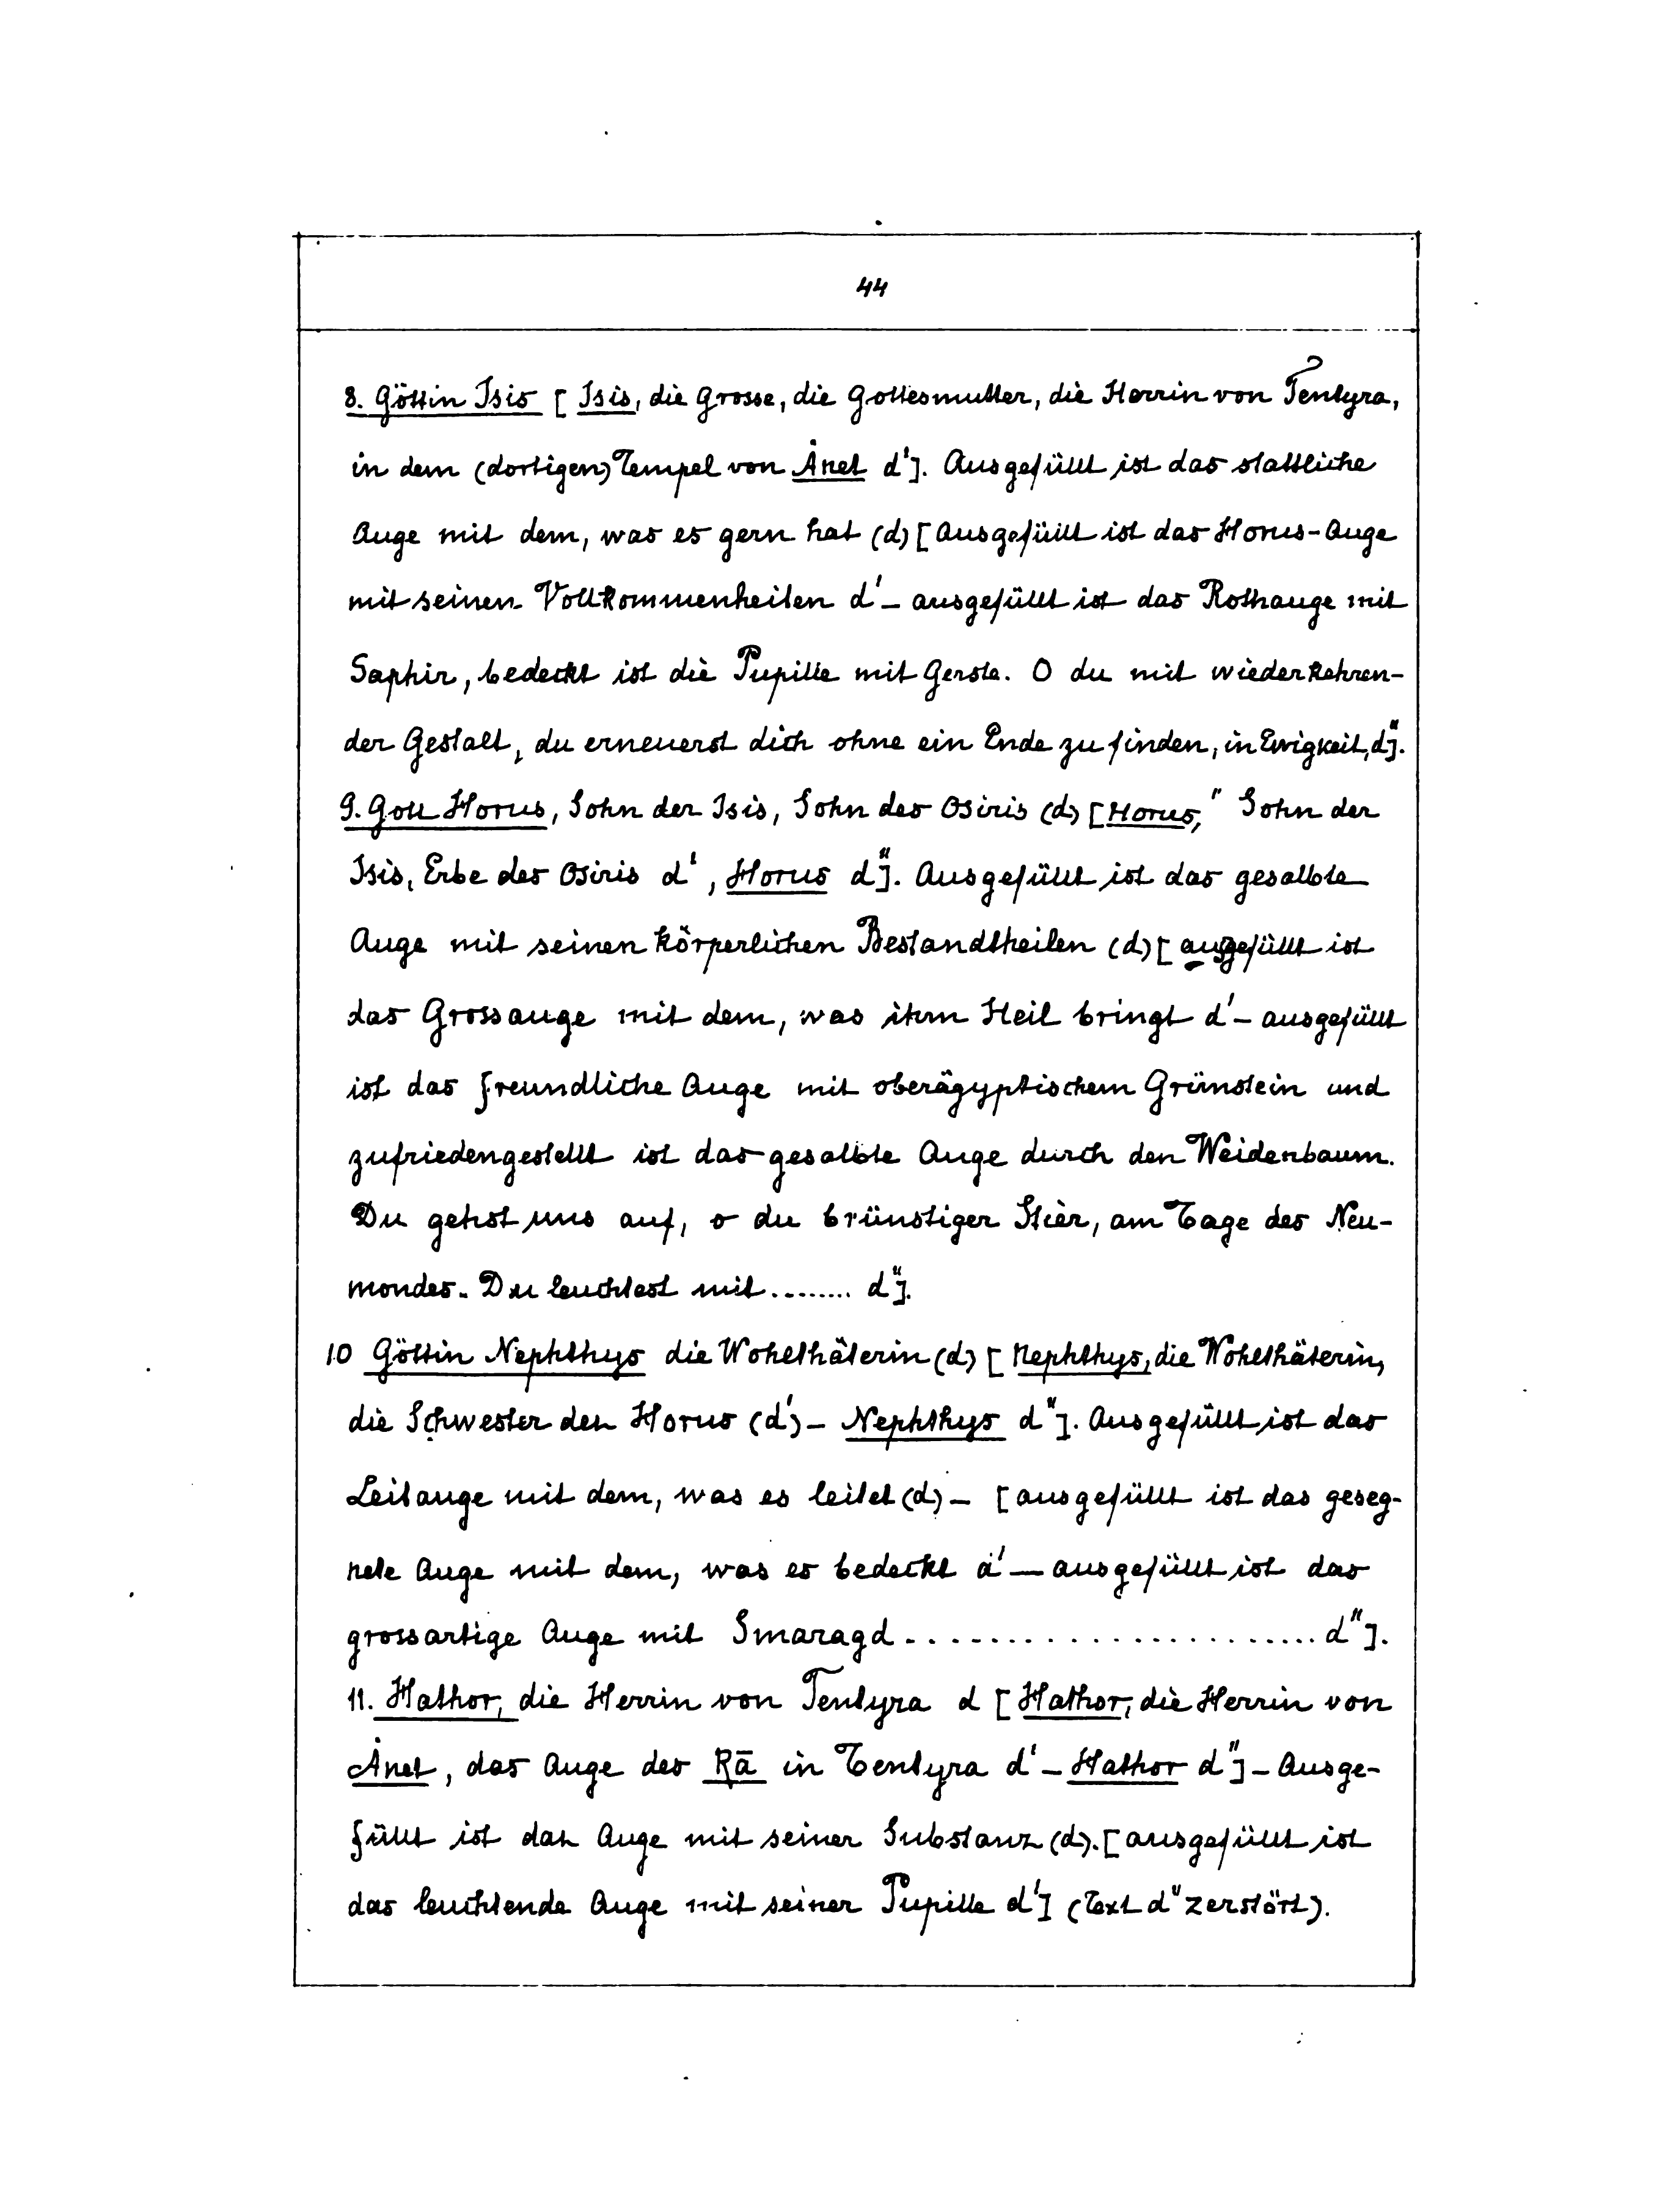 44
8. Göttin Isis [Isis, die Grosse, die Gottesmutter, die Herrin von Tentyra,
in dem (dortigen) Tempel von Ȧnet d']. Ausgefüllt ist das stattliche
Auge mit dem, was es gern hat (d) [Ausgefüllt ist das Horus-Auge
mit seinen Vollkommenheiten d' – ausgefüllt ist das Rothauge mit
Saphir, bedeckt ist die Pupille mit Gerste. O du mit wiederkehren-
der Gestalt, du erneuerst dich ohne ein Ende zu finden, in Ewigkeit, d"].
9. Gott Horus, Sohn der Isis, Sohn des Osiris (d) [Horus," Sohn der
Isis, Erbe des Osiris d', Horus d"]. Ausgefüllt ist das gesalbte
Auge mit seinen körperlichen Bestandtheilen (d) [ausgefüllt ist
das Grossauge mit dem, was ihm Heil bringt d' – ausgefüllt
ist das freundliche Auge mit oberägyptischem Grünstein und
zufriedengestellt ist das gesalbte Auge durch den Weidenbaum.
Du gehst uns auf, o du brünstiger Stier, am Tage des Neu-
mondes. Du leuchtest mit ........ d"].
10 Göttin Nephthys die Wohlthäterin (d) [Nephthys, die Wohlthäterin,
die Schwester den Horus (d') – Nephthys d"]. Ausgefüllt ist das
Leitauge mit dem, was es leitet (d) – [ausgefüllt ist das geseg-
nete Auge mit dem, was es bedeckt d' – ausgefüllt ist das
grossartige Auge mit Smaragd ....................... d"].
11. Hathor, die Herrin von Tentyra d [Hathor, die Herrin von
Ȧnet, das Auge des Rā in Tentyra d' – Hathor d"] – Ausge-
füllt ist dan Auge mit seiner Substanz (d). [ausgefüllt ist
das leuchtende Auge mit seiner Pupille d'] (Text d" zerstört).